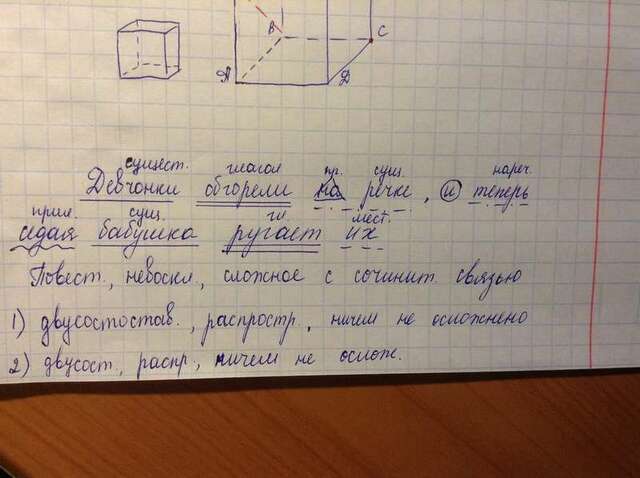 В С
А Д
сущест. глагол пр. сущ. нареч.
Девчонки обгорели на речке, и теперь
прил. сущ. гл. мест.
седая бабушка ругает их
Повест., невоскл., сложное с сочинит. связью
1) двусостостав., распростр., ничем не осложнено
2) двусост., распр., ничем не ослож.